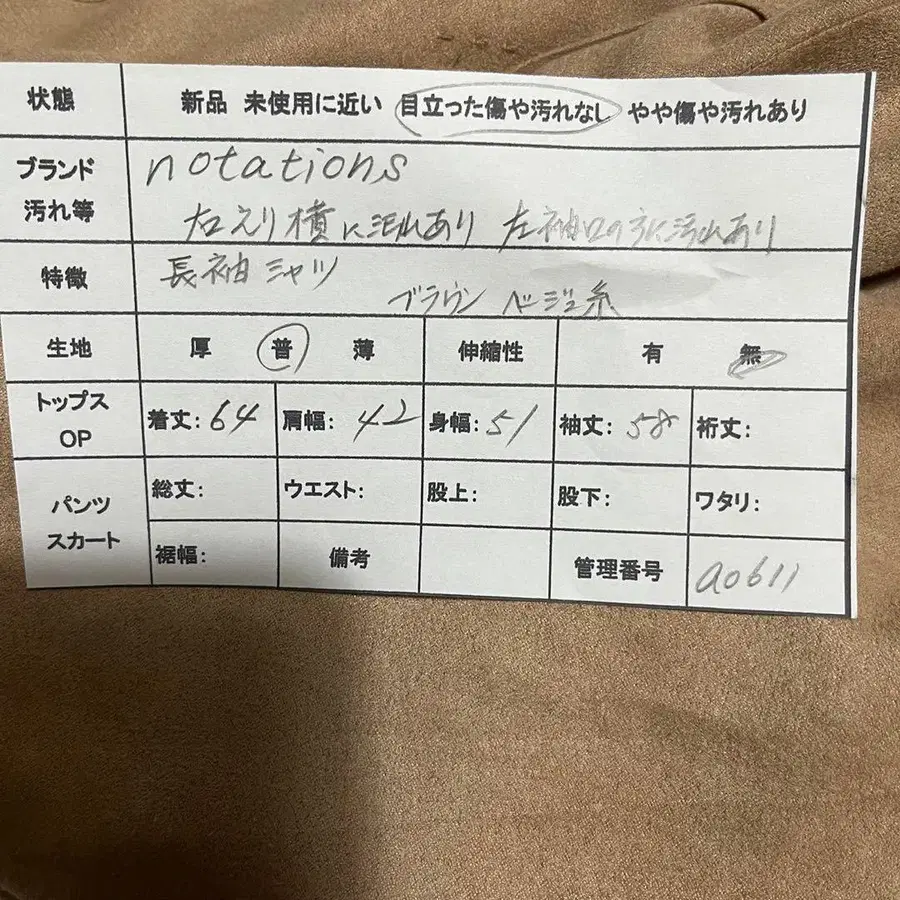 状態 新品 未使用に近い 目立った傷や汚れなし やや傷や汚れあり
ブランド notations
汚れ等 右えり横に汚れあり 左袖口の方に汚れあり
特徴 長袖シャツ
ブラウン ベージュ系
生地 厚 普 薄 伸縮性 有 無
トップス
OP 着丈: 64 肩幅: 42 身幅: 51 袖丈: 58 裄丈:
パンツ
スカート 総丈: ウエスト: 股上: 股下: ワタリ:
裾幅: 備考 管理番号 a0611